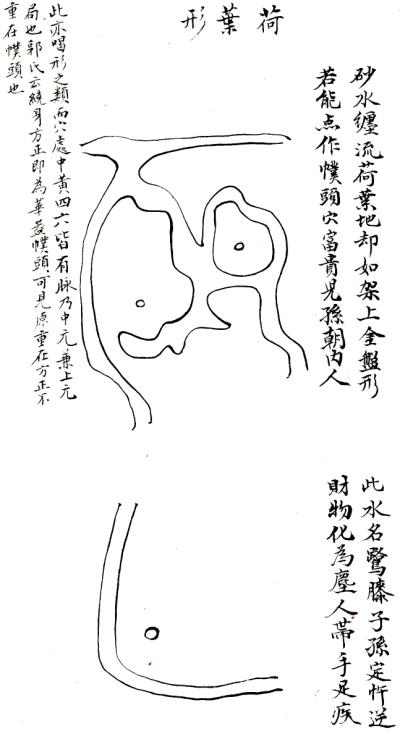 荷葉形
砂水纏流荷葉地却如架上金盤形
若能点作幞頭穴富貴児孫朝內人
此亦喝形之類而穴處中黃四六皆有脉乃中元兼上元
局也郭氏云繞身方正即為華蓋幞頭可見原重在方正不
重在幞頭也
此水名鷺膝子孫定忤逆
財物化為塵人帶手足疾